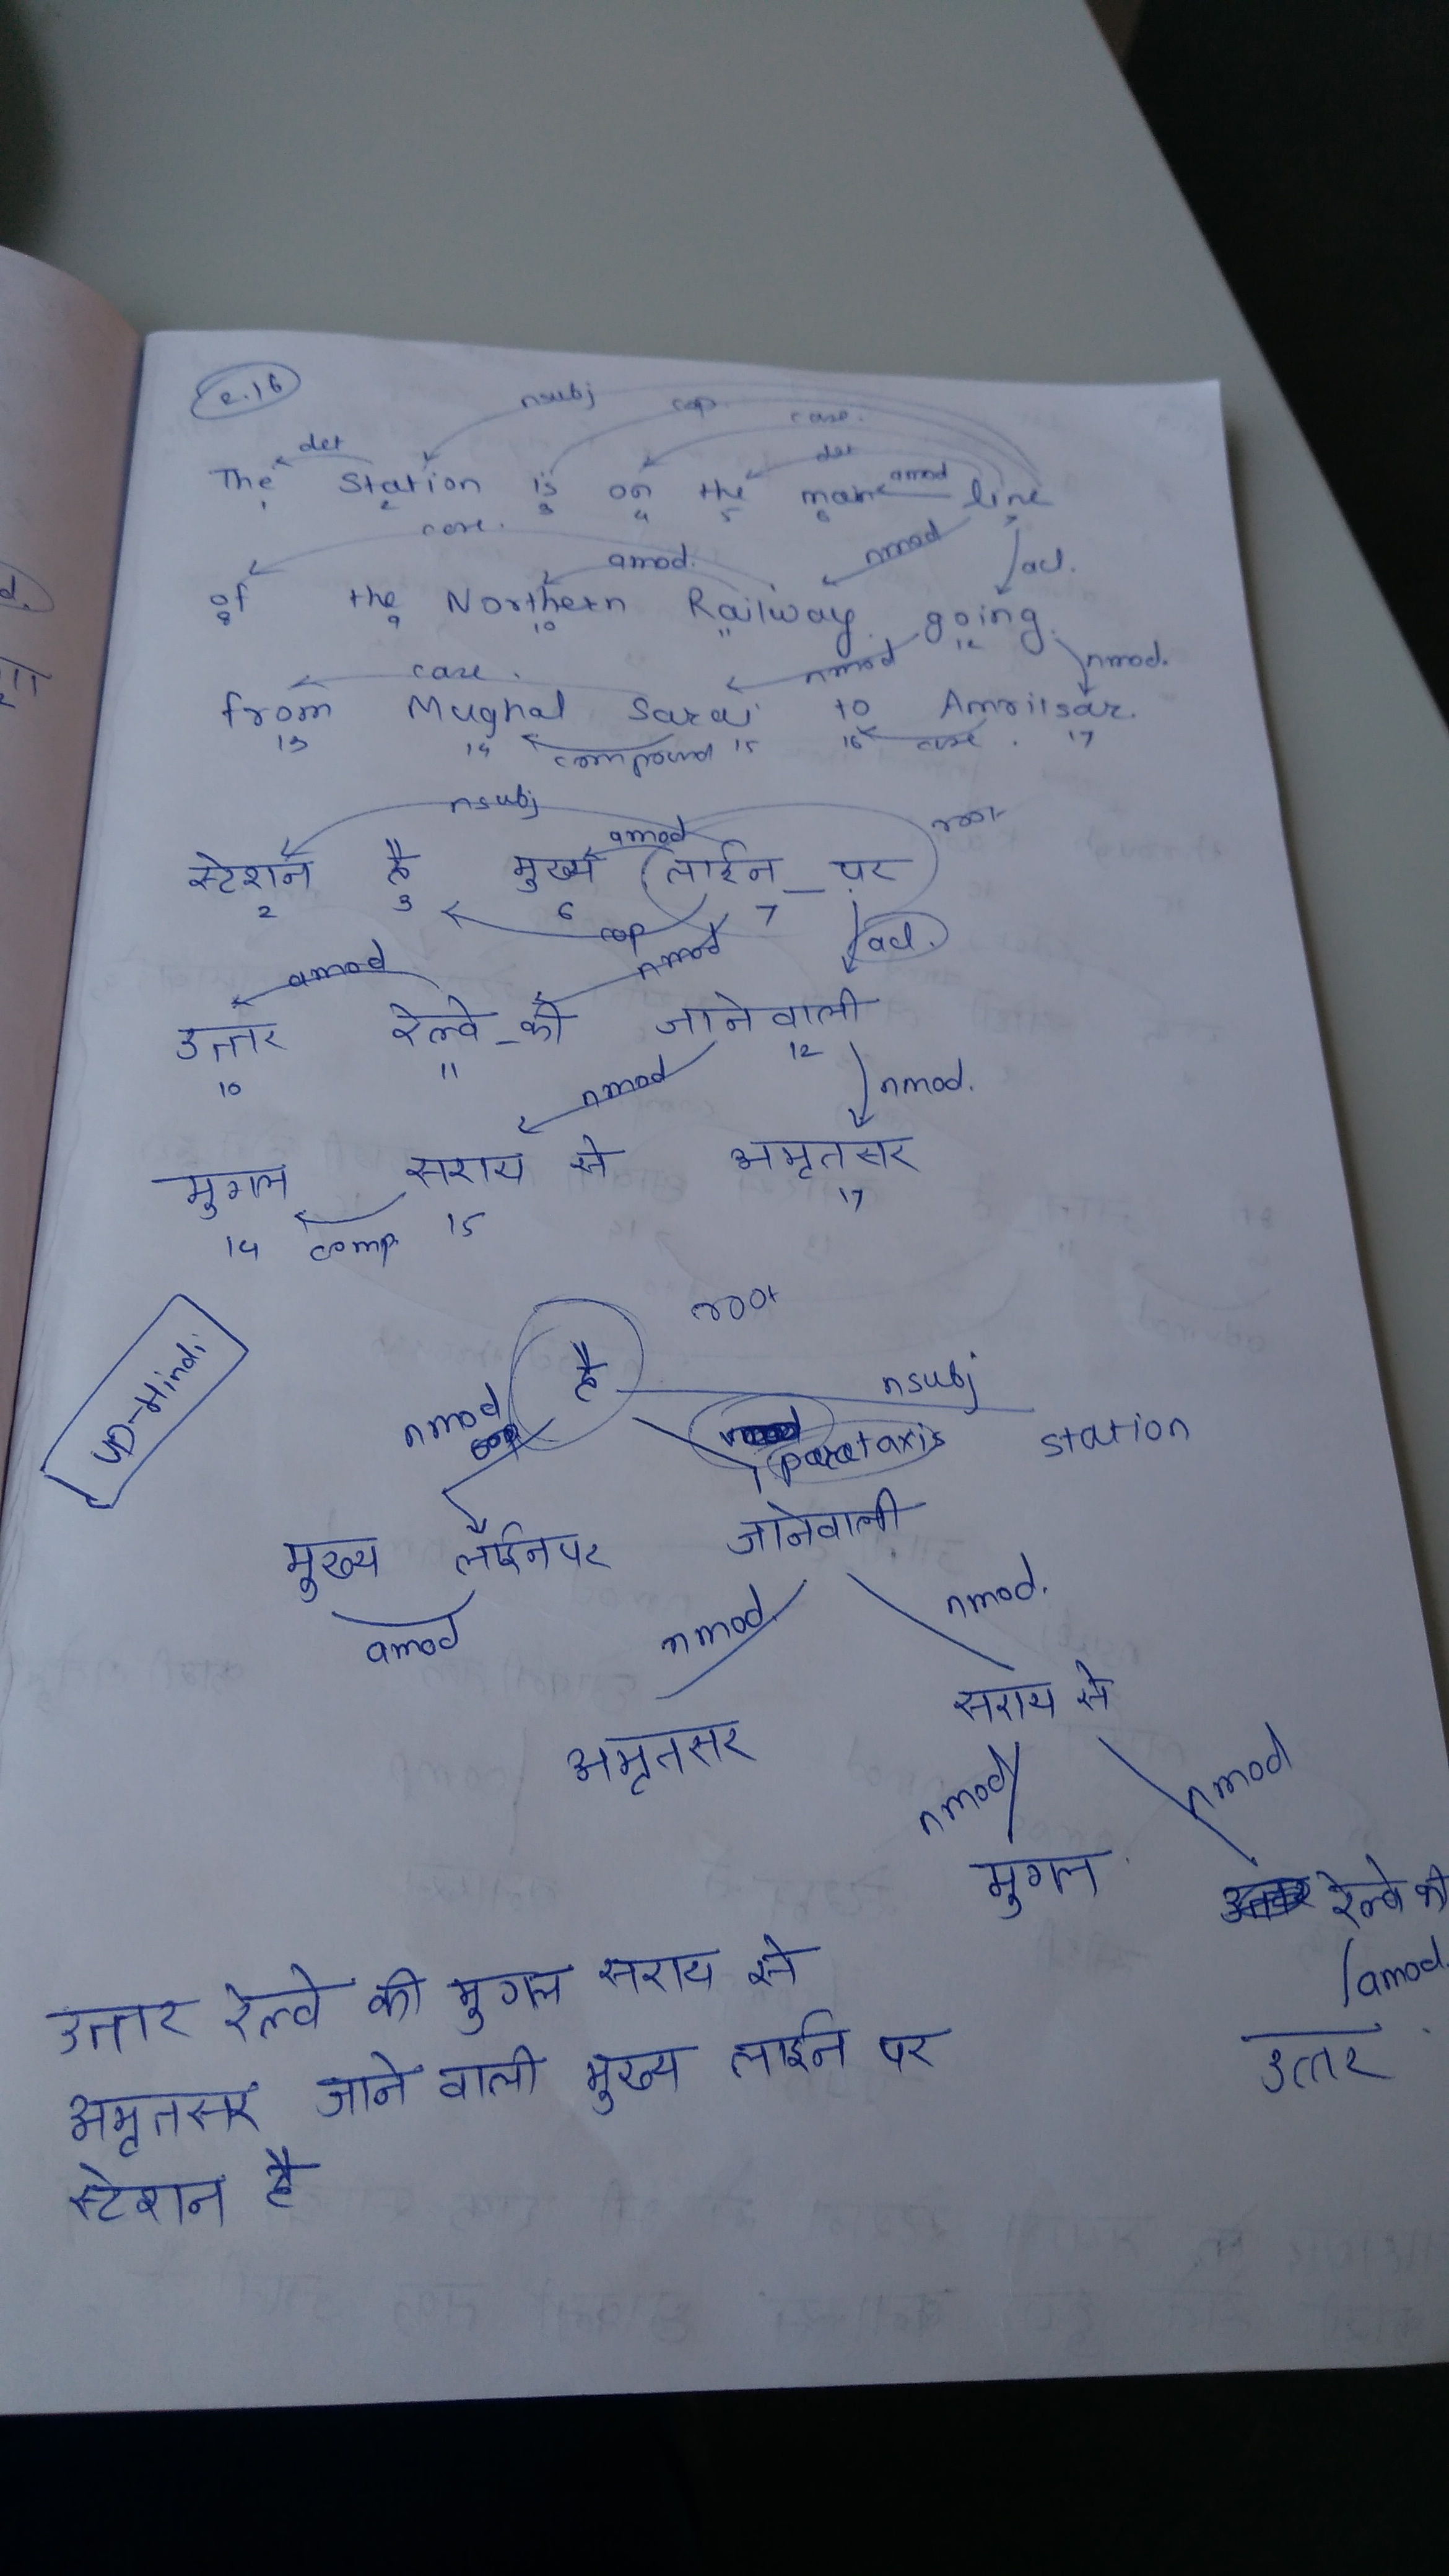 e.16
nsubj cop case.
det det amod
The station is on the main line
1 2 3 4 5 6 7
case. amod. nmod acl.
of the Northern Railway going
8 9 10 11 12
case. nmod nmod.
from Mughal Sarai to Amritsar.
13 14 15 16 17
compound case.
nsubj amod root
स्टेशन है मुख्य लाईन_पर
2 3 6 7
cop nmod acl.
amod
उत्तर रेल्वे_की जानेवाली
10 11 12
nmod nmod.
मुगल सराय से अमृतसर
14 15 17
comp.
root
UD-Hindi
है
nmod nsubj
parataxis station
मुख्य लाईनपर जानेवाली
amod nmod. nmod.
सराय से
अमृतसर
nmod nmod
मुगल रेल्वे की
amod.
उत्तर
उत्तर रेल्वे की मुगल सराय से
अमृतसर जाने वाली मुख्य लाईन पर
स्टेशन है